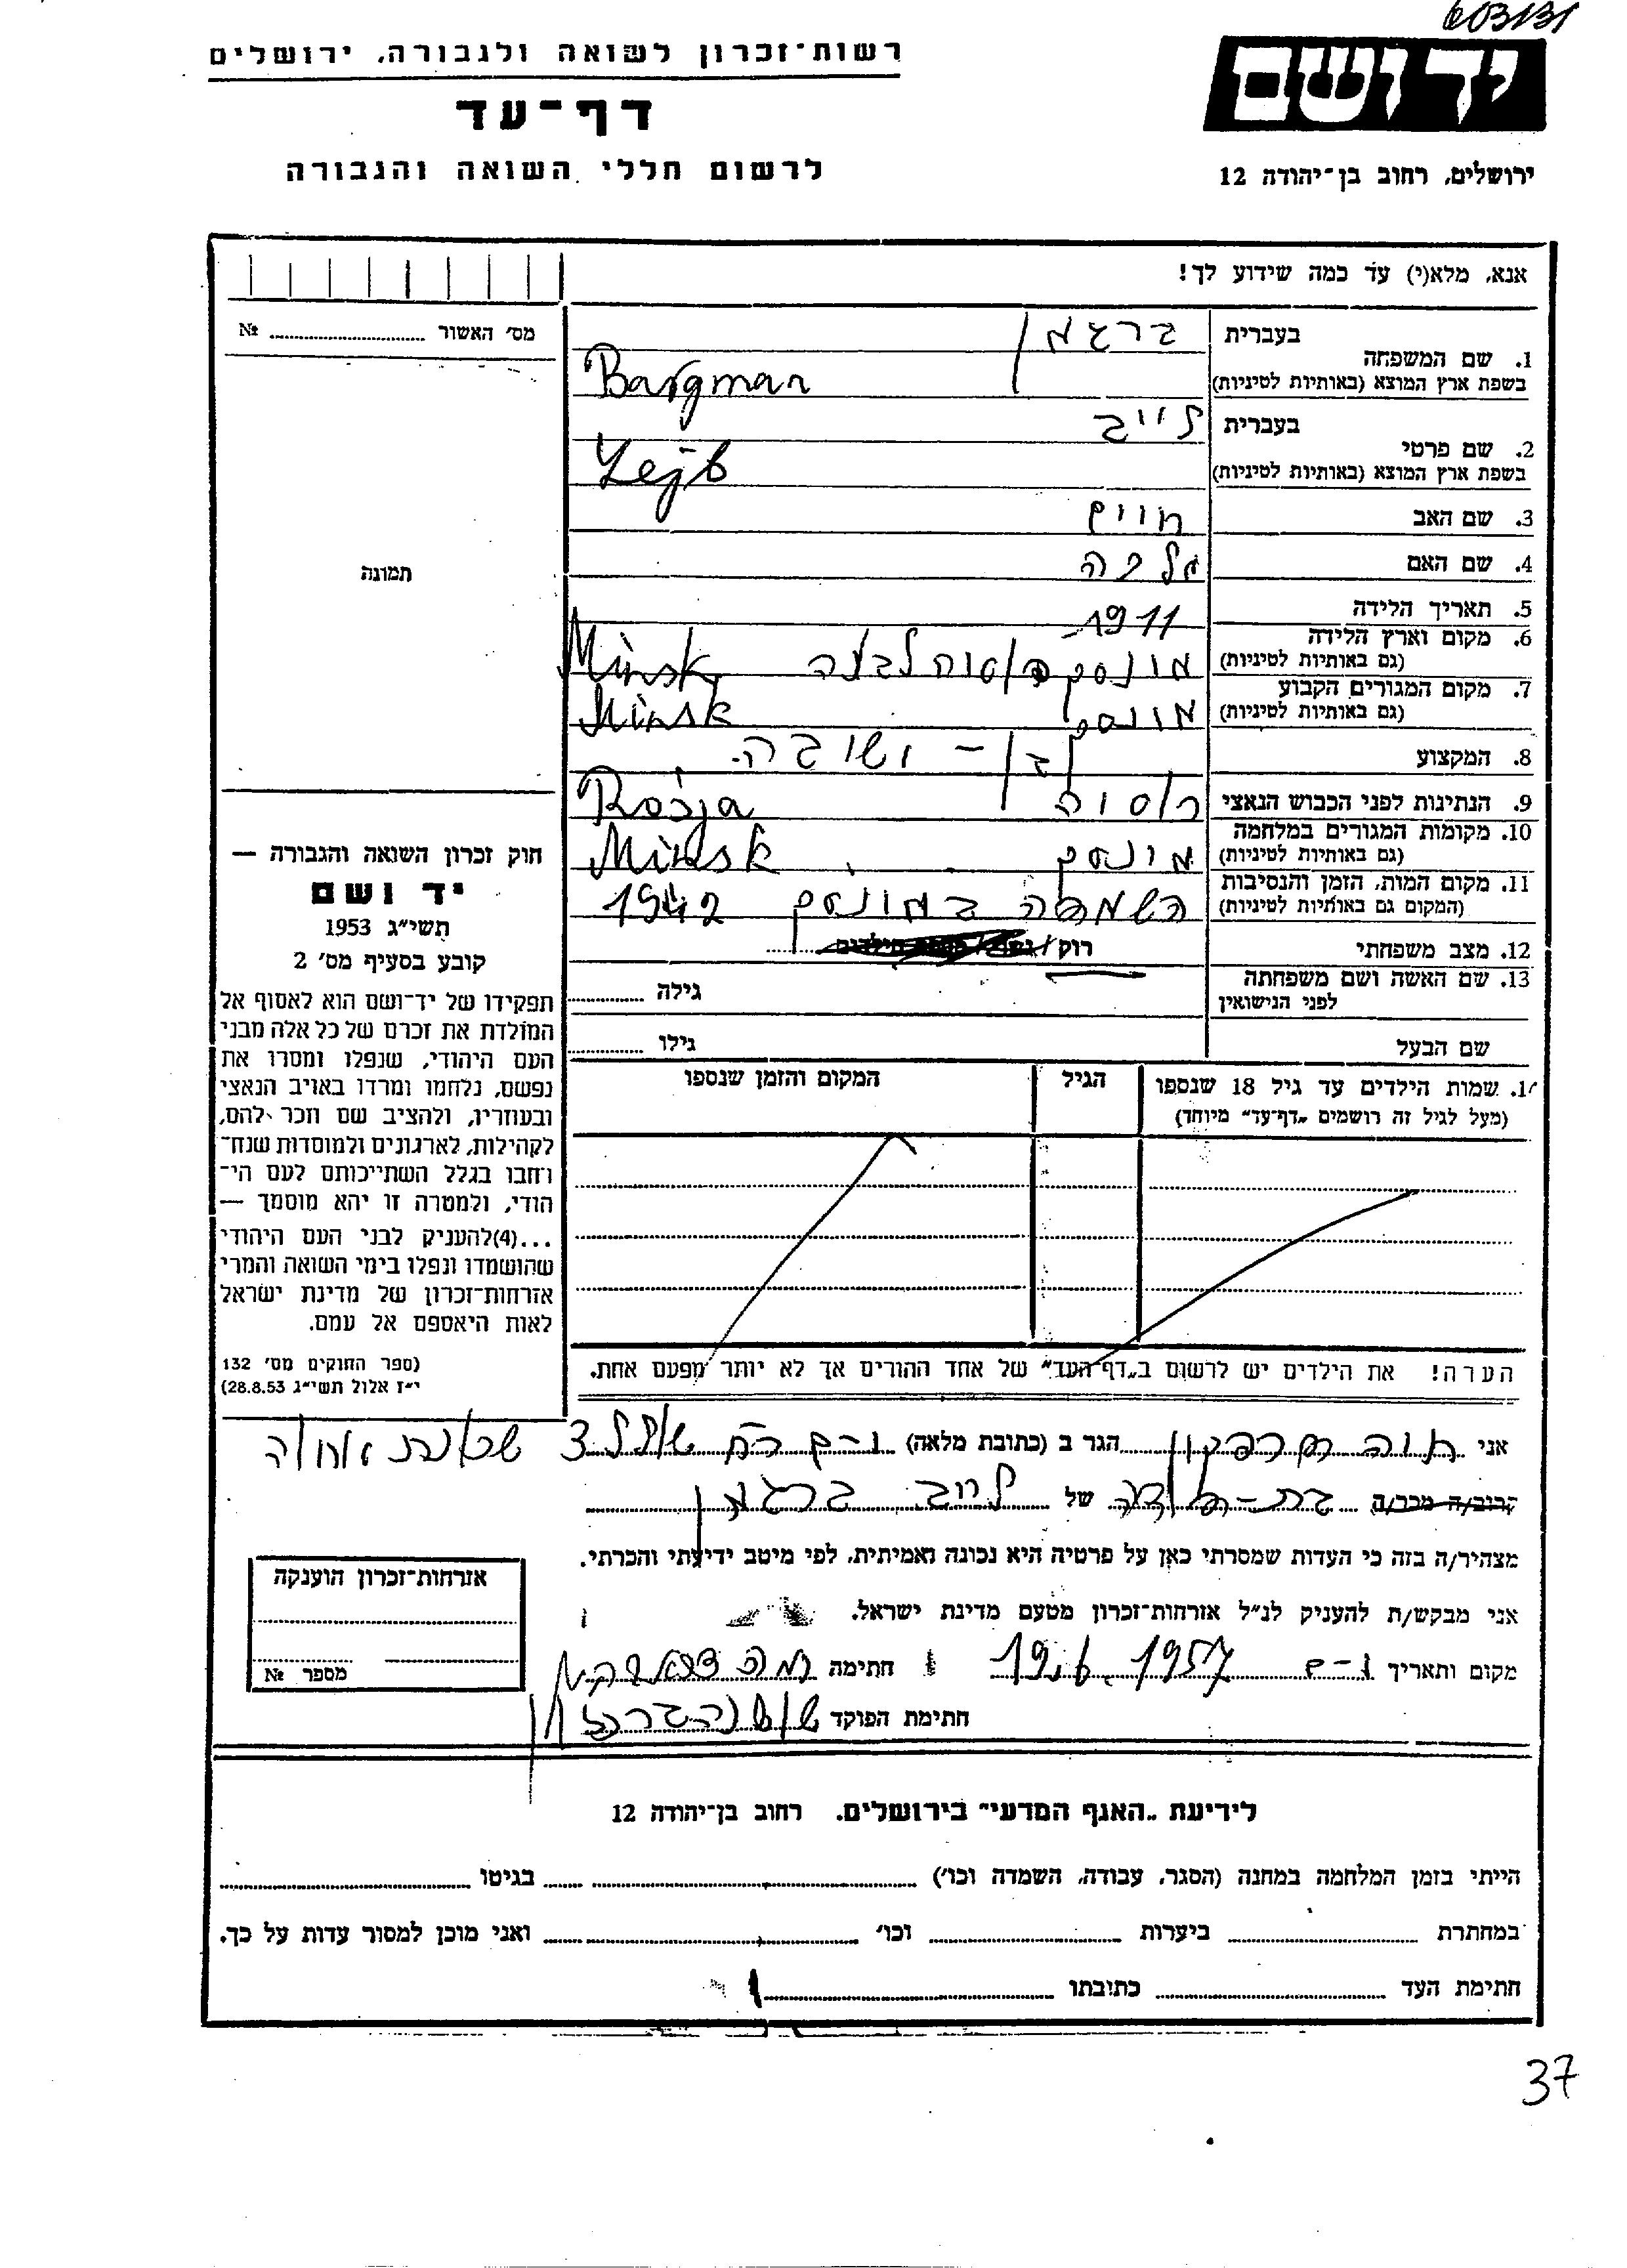 603131
ידושם
רשות־זכרון לשואה ולגבורה, ירושלים
דף־עד
לרשום חללי השואה והגבורה
ירושלים, רחוב בן־יהודה 12
אנא, מלא(י) עד כמה שידוע לך!
מס׳ האשור № 
בעברית ברגמן
1. שם המשפחה
בשפת ארץ המוצא (באותיות לטיניות) Bargman
בעברית לייב
2. שם פרטי
בשפת ארץ המוצא (באותיות לטיניות) Lejb
3. שם האב חיים
4. שם האם
תמונה
5. תאריך הלידה 1911
6. מקום וארץ הלידה
(גם באותיות לטיניות) מינסק Minsk
7. מקום המגורים הקבוע
(גם באותיות לטיניות) מינסק Minsk
8. המקצוע בן - ישיבה.
9. הנתינות לפני הכבוש הנאצי רוסיה Rosja
10. מקומות המגורים במלחמה
(גם באותיות לטיניות) מינסק Minsk
11. מקום המות, הזמן והנסיבות
(המקום גם באותיות לטיניות) השמדה במינסק 1942
12. מצב משפחתי רוק/
13. שם האשה ושם משפחתה
לפני הנישואין גילה
שם הבעל גילו
חוק זכרון השואה והגבורה —
יד ושם
תשי״ג 1953
קובע בסעיף מס׳ 2
תפקידו של יד־ושם הוא לאסוף אל
המולדת את זכרם של כל אלה מבני
העם היהודי, שנפלו ומסרו את
נפשם, נלחמו ומרדו באויב הנאצי
ובעוזריו, ולהציב שם וזכר להם,
לקהילות, לארגונים ולמוסדות שנח־
רבו בגלל השתייכותם לעם הי־
הודי, ולמטרה זו יהא מוסמך —
...(4)להעניק לבני העם היהודי
שהושמדו ונפלו בימי השואה והמרי
אזרחות־זכרון של מדינת ישראל
לאות היאספם אל עמם.
(ספר החוקים מס׳ 132
י״ז אלול תשי״ג 28.8.53)
14. שמות הילדים עד גיל 18 שנספו
(מעל לגיל זה רושמים „דף־עד״ מיוחד)
הגיל
המקום והזמן שנספו
הערה! את הילדים יש לרשום ב„דף־העד״ של אחד ההורים אך לא יותר מפעם אחת.
אני חוה הגר ב (כתובת מלאה) י-ם
קרוב/ה מכר/ה בת-דודה של לייב ברגמן
מצהיר/ה בזה כי העדות שמסרתי כאן על פרטיה היא נכונה ואמיתית, לפי מיטב ידיעתי והכרתי.
אני מבקש/ת להעניק לנ״ל אזרחות־זכרון מטעם מדינת ישראל.
מקום ותאריך י-ם 19.6.1957 חתימה
חתימת הפוקד
אזרחות־זכרון הוענקה
מספר №
לידיעת „האגף המדעי״ בירושלים. רחוב בן־יהודה 12
הייתי בזמן המלחמה במחנה (הסגר, עבודה, השמדה וכו׳) בגיטו
במחתרת ביערות וכו׳ ואני מוכן למסור עדות על כך.
חתימת העד כתובתו
37